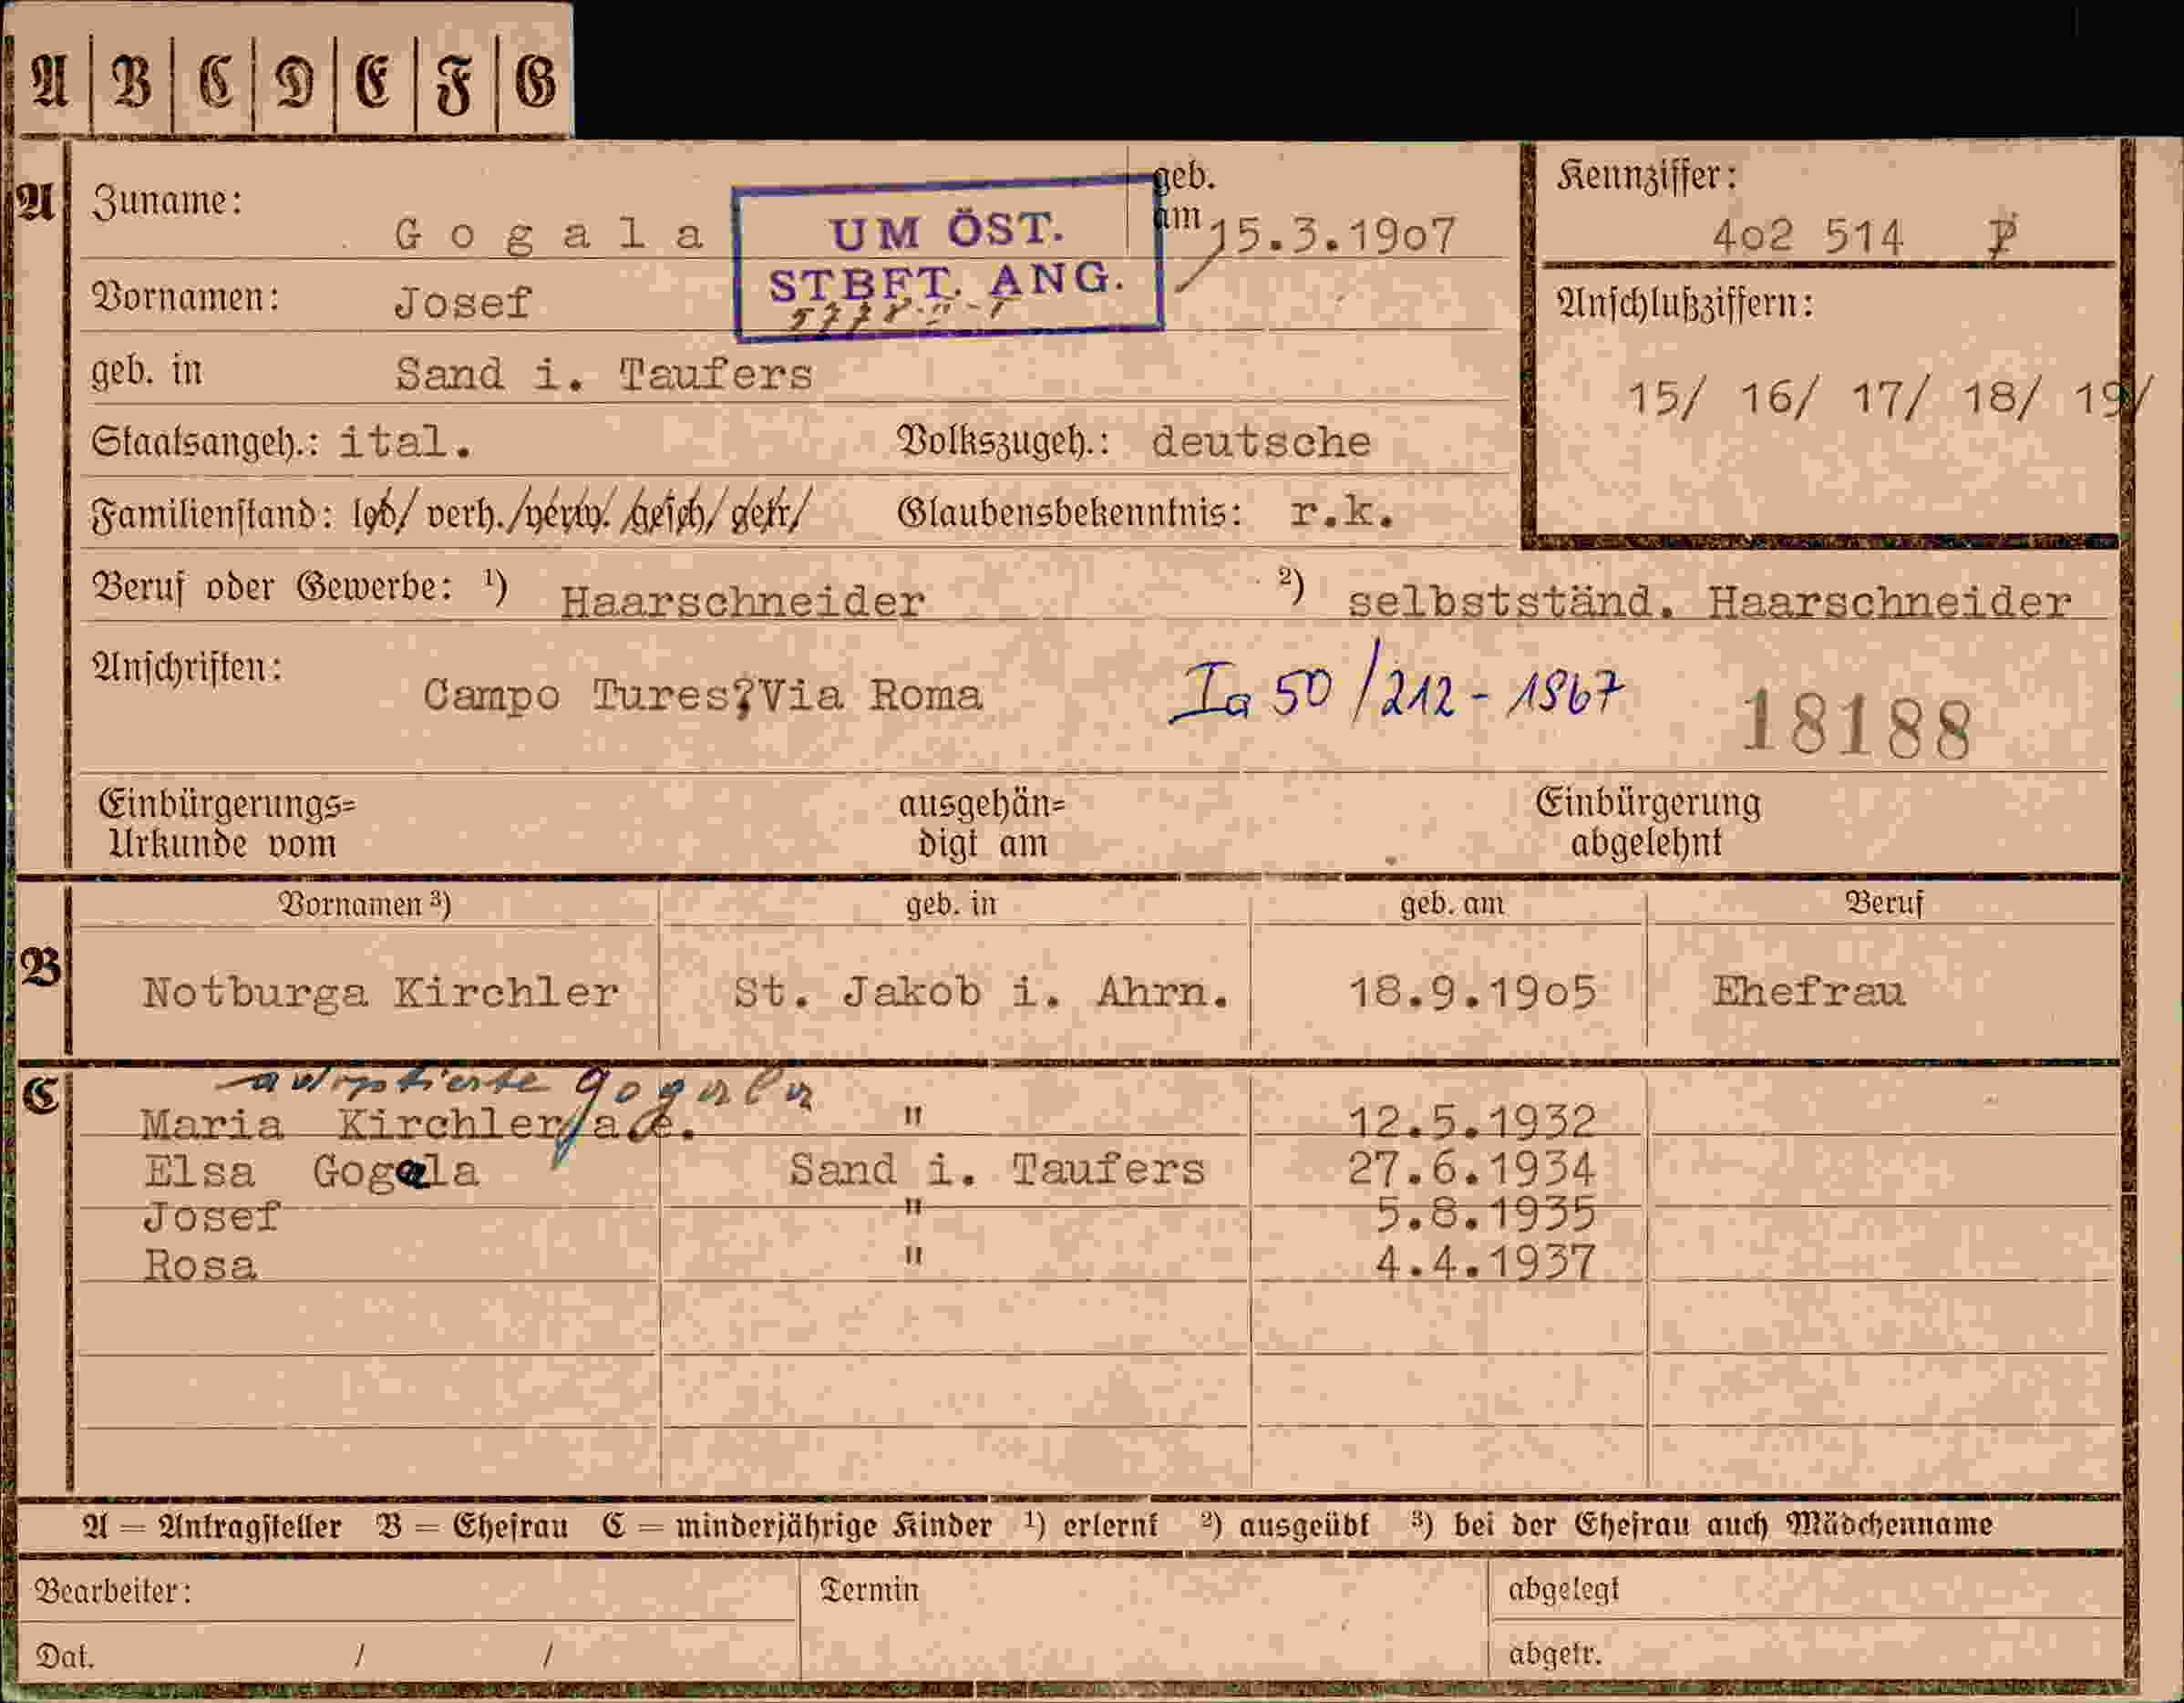 A B C D E F G
A
Zuname: Gogala
geb. am 15.3.1907
Kennziffer:
402 514 P
UM ÖST.
STBFT. ANG.
Vornamen: Josef
Anschlußziffern:
15/ 16/ 17/ 18/ 19/
geb. in Sand i. Taufers
Staatsangeh.: ital. Volkszugeh.: deutsche
Familienstand: led/ verh./verw./gesch/getr/ Glaubensbekenntnis: r.k.
Beruf oder Gewerbe: ¹) Haarschneider ²) selbstständ. Haarschneider
Anschriften: Campo Tures?Via Roma Ia 50/212-1867 18188
Einbürgerungs=
Urkunde vom
ausgehän=
digt am
Einbürgerung
abgelehnt
Vornamen ³) geb. in geb. am Beruf
B
Notburga Kirchler St. Jakob i. Ahrn. 18.9.1905 Ehefrau
C
adoptierte Gogala
Maria Kirchler/a.e. " 12.5.1932
Elsa Gogala Sand i. Taufers 27.6.1934
Josef " 5.8.1935
Rosa " 4.4.1937
A = Antragsteller B = Ehefrau C = minderjährige Kinder ¹) erlernt ²) ausgeübt ³) bei der Ehefrau auch Mädchenname
Bearbeiter: Termin abgelegt
Dat. / / abgetr.